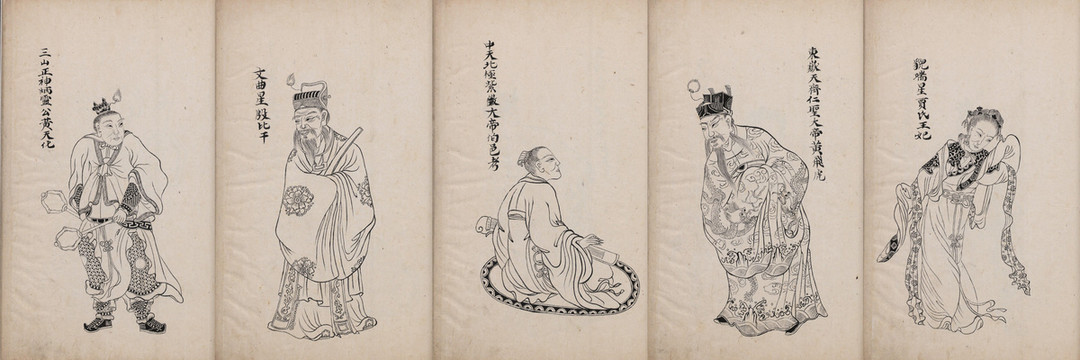 三山正神炳靈公黃天化
文曲星殷比干
中天北極紫微大帝伯邑考
東嶽天齊仁聖大帝黃飛虎
貌端星賈氏王妃